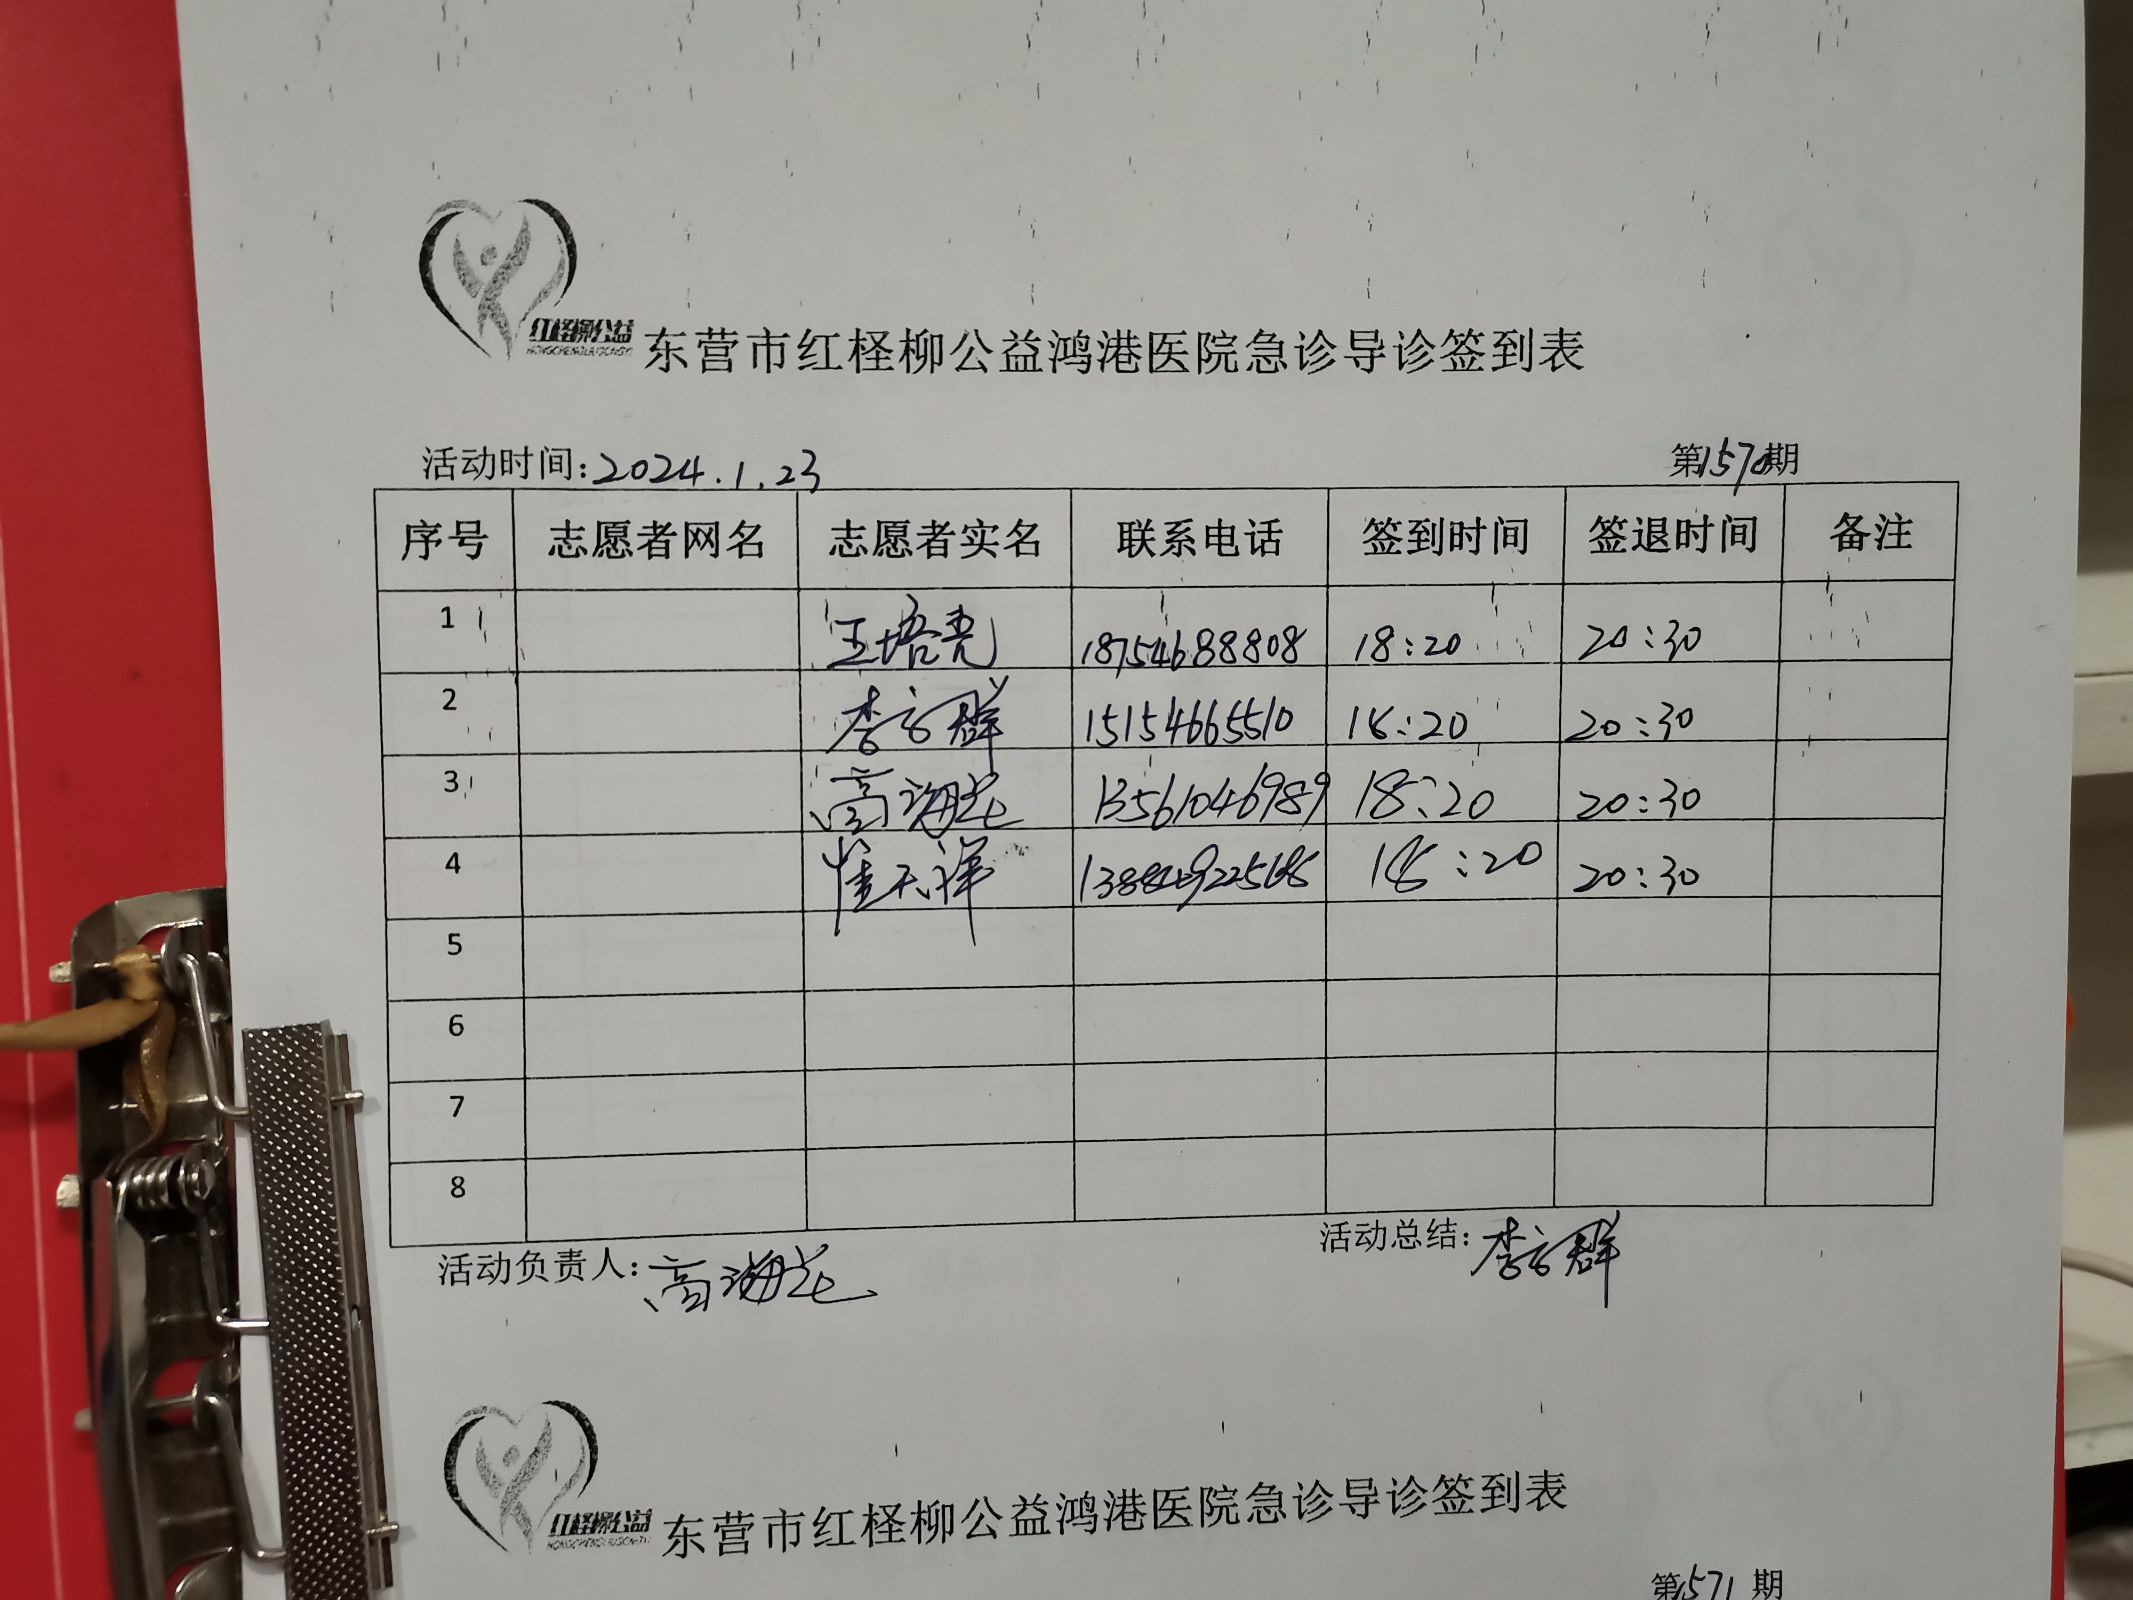 红柽柳公益
东营市红柽柳公益鸿港医院急诊导诊签到表
活动时间:2024.1.23 第1570期
序号 志愿者网名 志愿者实名 联系电话 签到时间 签退时间 备注
1 王培亮 18754688808 18:20 20:30
2 李方群 15154665510 18:20 20:30
3 高海花 13561046989 18:20 20:30
4 崔天祥 18:20 20:30
5
6
7
8
活动负责人:高海花 活动总结:李方群
红柽柳公益
东营市红柽柳公益鸿港医院急诊导诊签到表
第1571期